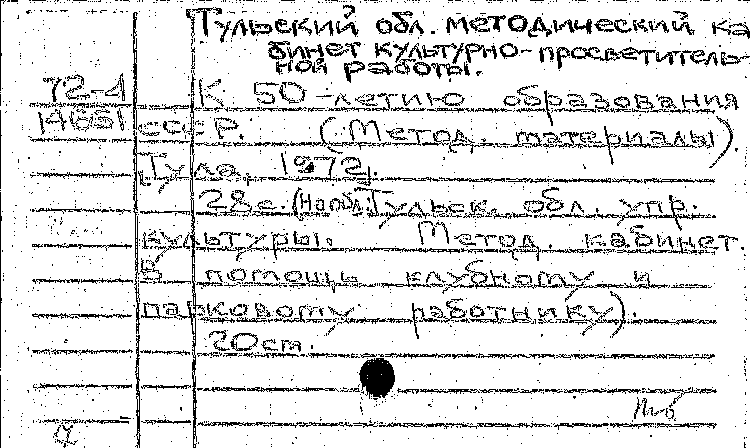 Тульский обл. методический ка
бинет культурно-просветитель-
ной работы.
72-4 К 50-летию образования
14651 СССР. (Метод. материалы).
[Тула, 1972].
28 с. (На обл.: Тульск. обл. упр.
культуры. Метод. кабинет.
В помощь клубному и
парковому работнику).
20 см.